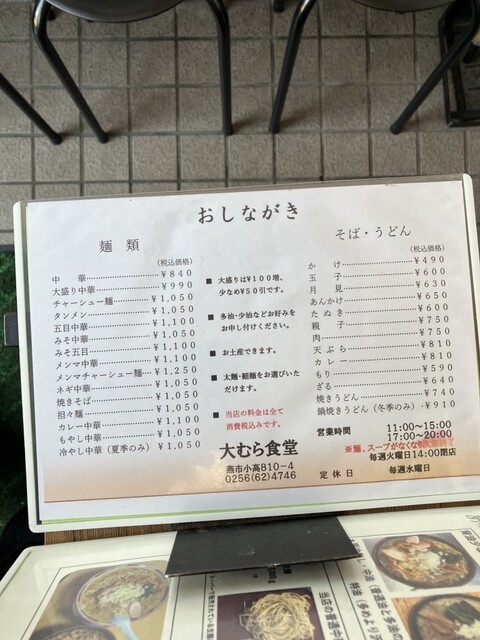 おしながき
麺類
(税込価格)
中華 ¥840
大盛り中華 ¥990
チャーシュー麺 ¥1,050
タンメン ¥1,050
五目中華 ¥1,100
みそ中華 ¥1,050
みそ五目 ¥1,100
メンマ中華 ¥1,100
メンマチャーシュー麺 ¥1,250
ネギ中華 ¥1,050
焼きそば ¥1,050
担々麺 ¥1,050
カレー中華 ¥1,100
もやし中華 ¥1,050
冷やし中華(夏季のみ) ¥1,050
■ 大盛りは¥100増、
少なめ¥50引です。
■ 多油・少油などお好みを
お申し付けください。
■ お土産できます。
■ 太麺・細麺をお選びいた
だけます。
■ 当店の料金は全て
消費税込みです。
大むら食堂
燕市小高810-4
0256(62)4746
そば・うどん
(税込価格)
かけ ¥490
玉子 ¥600
月見 ¥630
あんかけ ¥650
たぬき ¥600
親子 ¥750
肉 ¥750
天ぷら ¥810
カレー ¥810
もり ¥590
ざる ¥640
焼きうどん ¥740
鍋焼きうどん(冬季のみ) ¥910
営業時間 11:00~15:00
17:00~20:00
※麺、スープがなくなり
毎週火曜日14:00閉店
定休日 毎週水曜日